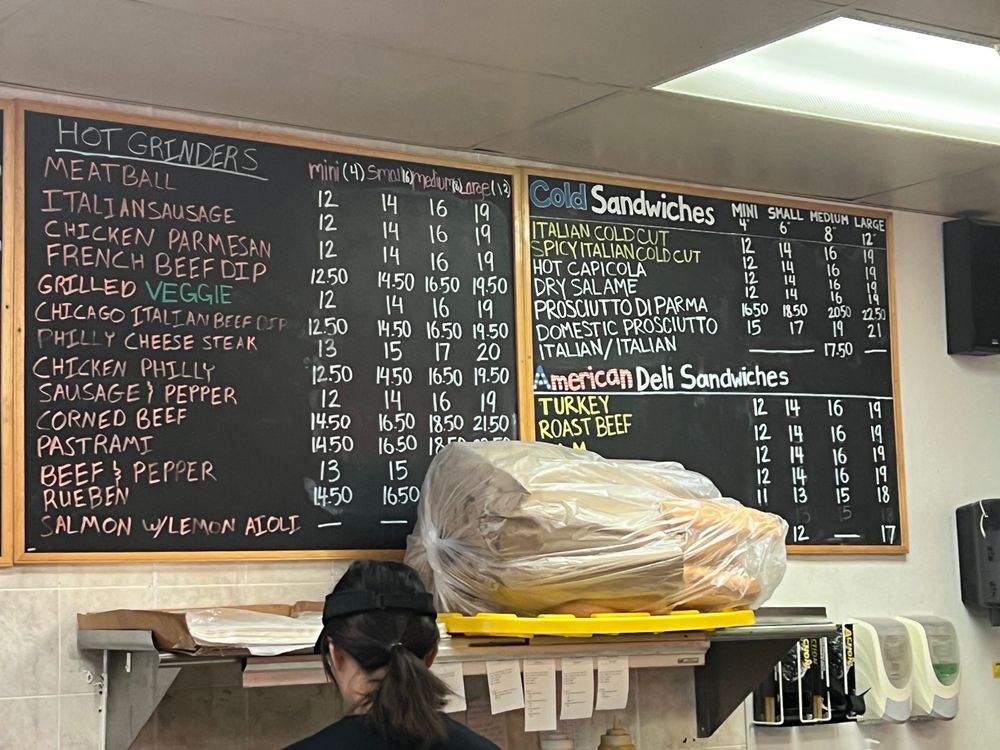 HOT GRINDERS mini (4) Small(6) medium(8) Large(12)
MEATBALL 12 14 16 19
ITALIAN SAUSAGE 12 14 16 19
CHICKEN PARMESAN 12 14 16 19
FRENCH BEEF DIP 12.50 14.50 16.50 19.50
GRILLED VEGGIE 12 14 16 19
CHICAGO ITALIAN BEEF DIP 12.50 14.50 16.50 19.50
PHILLY CHEESE STEAK 13 15 17 20
CHICKEN PHILLY 12.50 14.50 16.50 19.50
SAUSAGE & PEPPER 12 14 16 19
CORNED BEEF 14.50 16.50 18.50 21.50
PASTRAMI 14.50 16.50
BEEF & PEPPER 13 15
RUEBEN 14.50 16.50
SALMON W/LEMON AIOLI — —
Cold Sandwiches MINI SMALL MEDIUM LARGE
4" 6" 8" 12"
ITALIAN COLD CUT 12 14 16 19
SPICY ITALIAN COLD CUT 12 14 16 19
HOT CAPICOLA 12 14 16 19
DRY SALAME 12 14 16 19
PROSCIUTTO DI PARMA 16.50 18.50 20.50 22.50
DOMESTIC PROSCIUTTO 15 17 19 21
ITALIAN/ITALIAN — 17.50 —
American Deli Sandwiches
TURKEY 12 14 16 19
ROAST BEEF 12 14 16 19
12 14 16 19
12 14 16 19
11 13 15 18
13 15 18
12 — 17